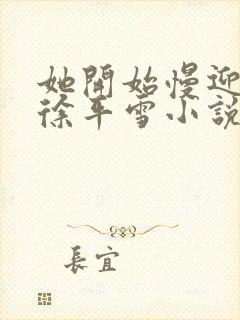 她開始慢迎
徐平雪小說
長宜